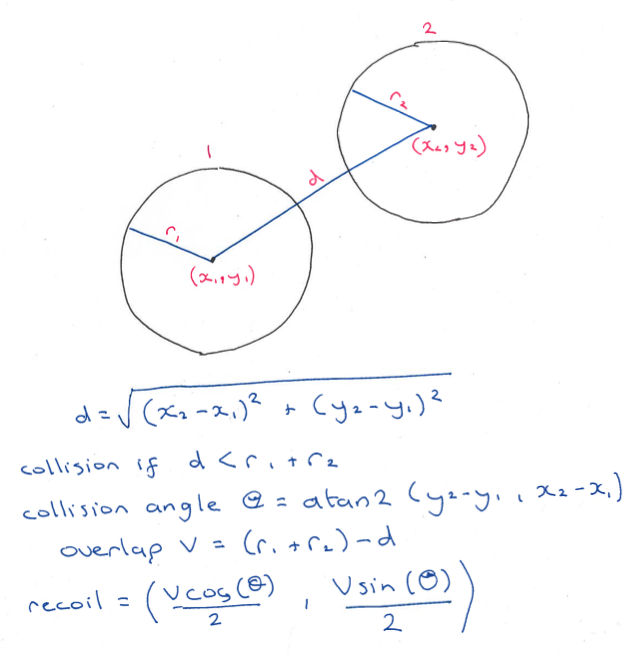 2
r₂
(x₂, y₂)
d
1
r₁
(x₁, y₁)
d = √((x₂-x₁)² + (y₂-y₁)²)
collision if d < r₁ + r₂
collision angle θ = atan2 (y₂-y₁, x₂-x₁)
overlap V = (r₁ + r₂) - d
recoil = (Vcos(θ)/2, Vsin(θ)/2)